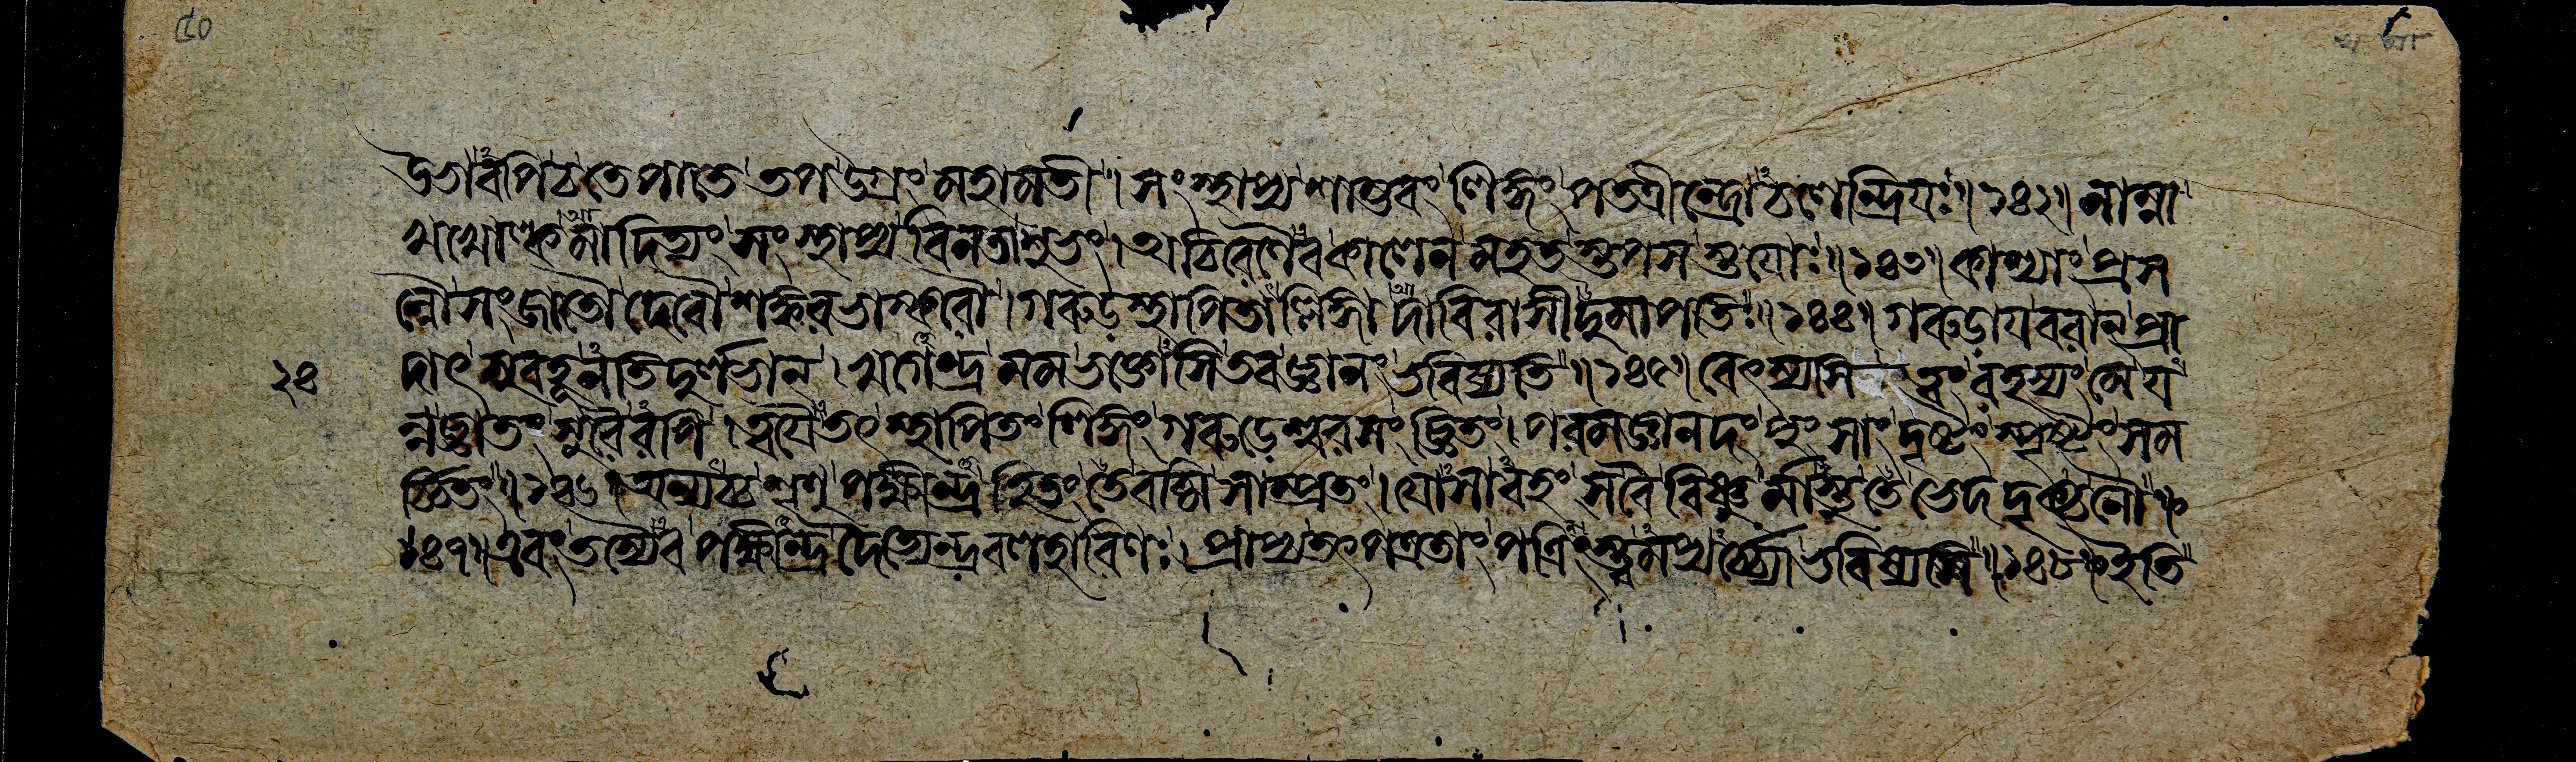 উভাবপি চ তেপাতে তপ উগ্রং মহামতী। সংস্থাপ্য শাম্ভবং লিঙ্গং পতত্রীন্দ্রোচলেন্দ্রিযঃ॥১৪২॥ নাম্না
খখোল্কমাদিত্যং সংস্থাপ্য বিনতা শুভং। অচিরেণৈব কালেন মহতস্তপসস্তযোঃ॥১৪৩॥ কাশ্যাং প্রস
ন্নৌ সংজাতৌ দেবৌ শঙ্করভাস্করৌ। গরুডস্থাপিতাল্লিঙ্গাদাবিরাসীদুমাপতিঃ॥১৪৪॥ গরুডায বরান্ প্রা
২৪ দাৎ সুবহূনতিদুর্লভান্। খগেন্দ্র মম ভক্তোসি তব জ্ঞানং ভবিষ্যতি॥১৪৫॥ বেৎস্যসি ত্বং রহস্যং মে য
ন্ন জ্ঞাতং সুরৈরপি। ত্বযৈতৎ স্থাপিতং লিঙ্গং গরুডেশ্বরসংজ্ঞিতং। পরমজ্ঞানদং পুংসাং দৃষ্টং স্পৃষ্টং সম
র্চ্চিতং॥১৪৬॥ অন্যচ্চ শৃণু পক্ষীন্দ্র হিতং তে বচ্মি সাম্প্রতং। যোসাবহং স বৈ বিষ্ণুর্মাস্তু তে ভেদদৃক্তনৌ॥
১৪৭॥ এবং তস্যৈব পক্ষীন্দ্র দৈত্যেন্দ্রবলহারিণঃ। প্রাপ্য তৎ পত্রতাং পত্রিংস্ত্বমপ্যর্চ্চ্যো ভবিষ্যসি॥১৪৮॥ ইতি